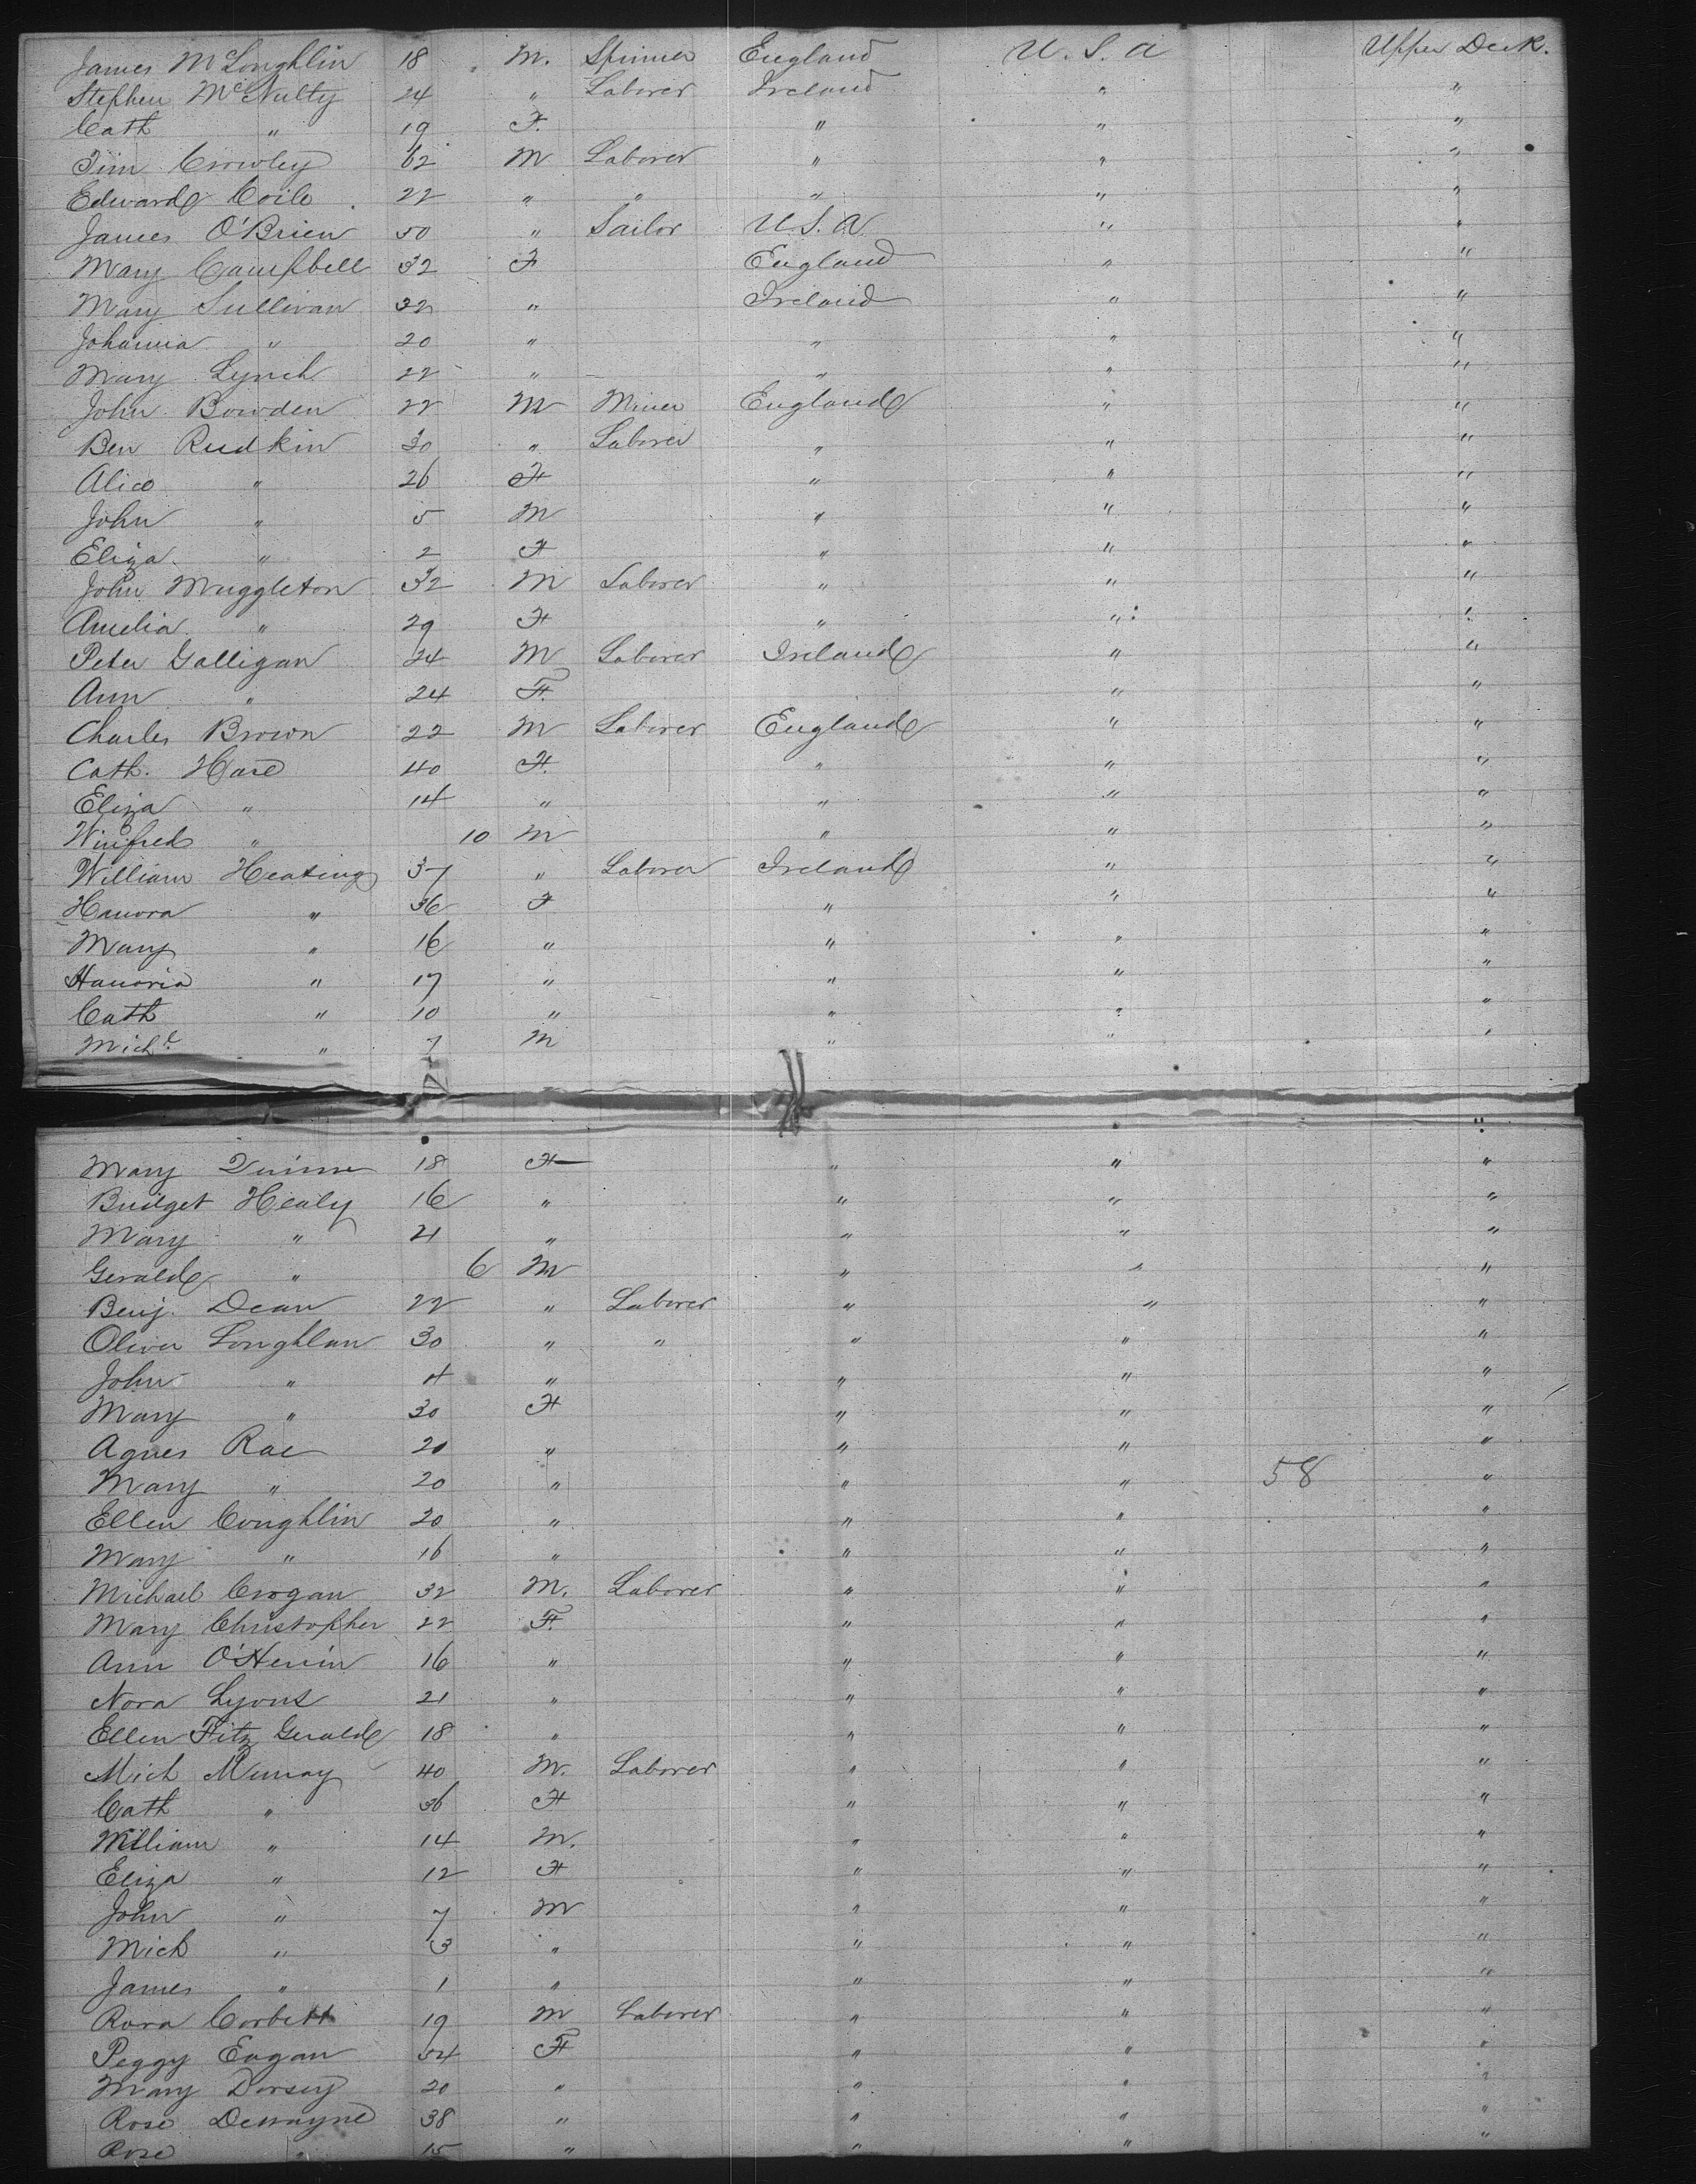 James McLoughlin 18 M. Spinner England U. S. A Upper Deck.
Stephen McNulty 24 " Laborer Ireland " "
Cath " 19 F. " " "
Tim Crowley 62 M Laborer " " "
Edward Coile 22 " " " " "
James O'Brien 50 " Sailor U. S. A " "
Mary Campbell 32 F England " "
Mary Sullivan 32 " Ireland " "
Johanna " 20 " " " "
Mary Lynch 22 " " " "
John Bowden 22 M Miner England " "
Ben Rudkin 30 " Laborer " " "
Alice " 26 F " " "
John " 5 M " " "
Eliza " 2 F " " "
John Muggleton 32 M Laborer " " "
Amelia " 29 F " " "
Peter Galligan 24 M Laborer Ireland " "
Ann " 24 F. " "
Charles Brown 22 M Laborer England " "
Cath. Hare 40 F. " " "
Eliza " 14 " " " "
Winifred " 10 M " " "
William Heating 37 " Laborer Ireland " "
Hanora " 36 F " " "
Mary " 16 " " " "
Hanoria " 17 " " " "
Cath " 10 " " " "
Michl " 7 M " " "
Mary Quinn 18 F " " "
Bridget Healy 16 " " " "
Mary " 21 " " " "
Gerald " 6 M " " "
Benj. Dean 22 " Laborer " " "
Oliver Loughlan 30 " " " " "
John " 4 " " " "
Mary " 30 F " " "
Agnes Rae 20 " " " "
Mary " 20 " " " 58 "
Ellen Coughlin 20 " " " "
Mary " 16 " " " "
Michael Crogan 32 M. Laborer " " "
Mary Christopher 22 F. " " "
Ann 16 " " " "
Nora Lyons 21 " " " "
Ellen Fitz Gerald 18 " " " "
Mich Murray 40 M. Laborer " " "
Cath " 36 F " " "
William " 14 M. " " "
Eliza " 12 F " " "
John " 7 M " " "
Mich " 3 " " " "
James " 1 " " " "
Rora Corbett 19 M Laborer " " "
Peggy Eagan 54 F " " "
Mary Dorsey 20 " " " "
Rose Dewayne 38 " " " "
Rose " 15 " " " "